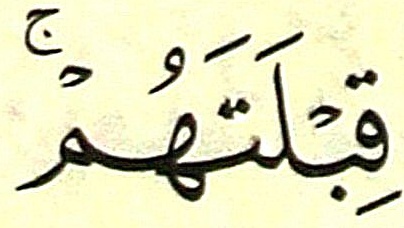 قِبْلَتَهُمْ ۚ